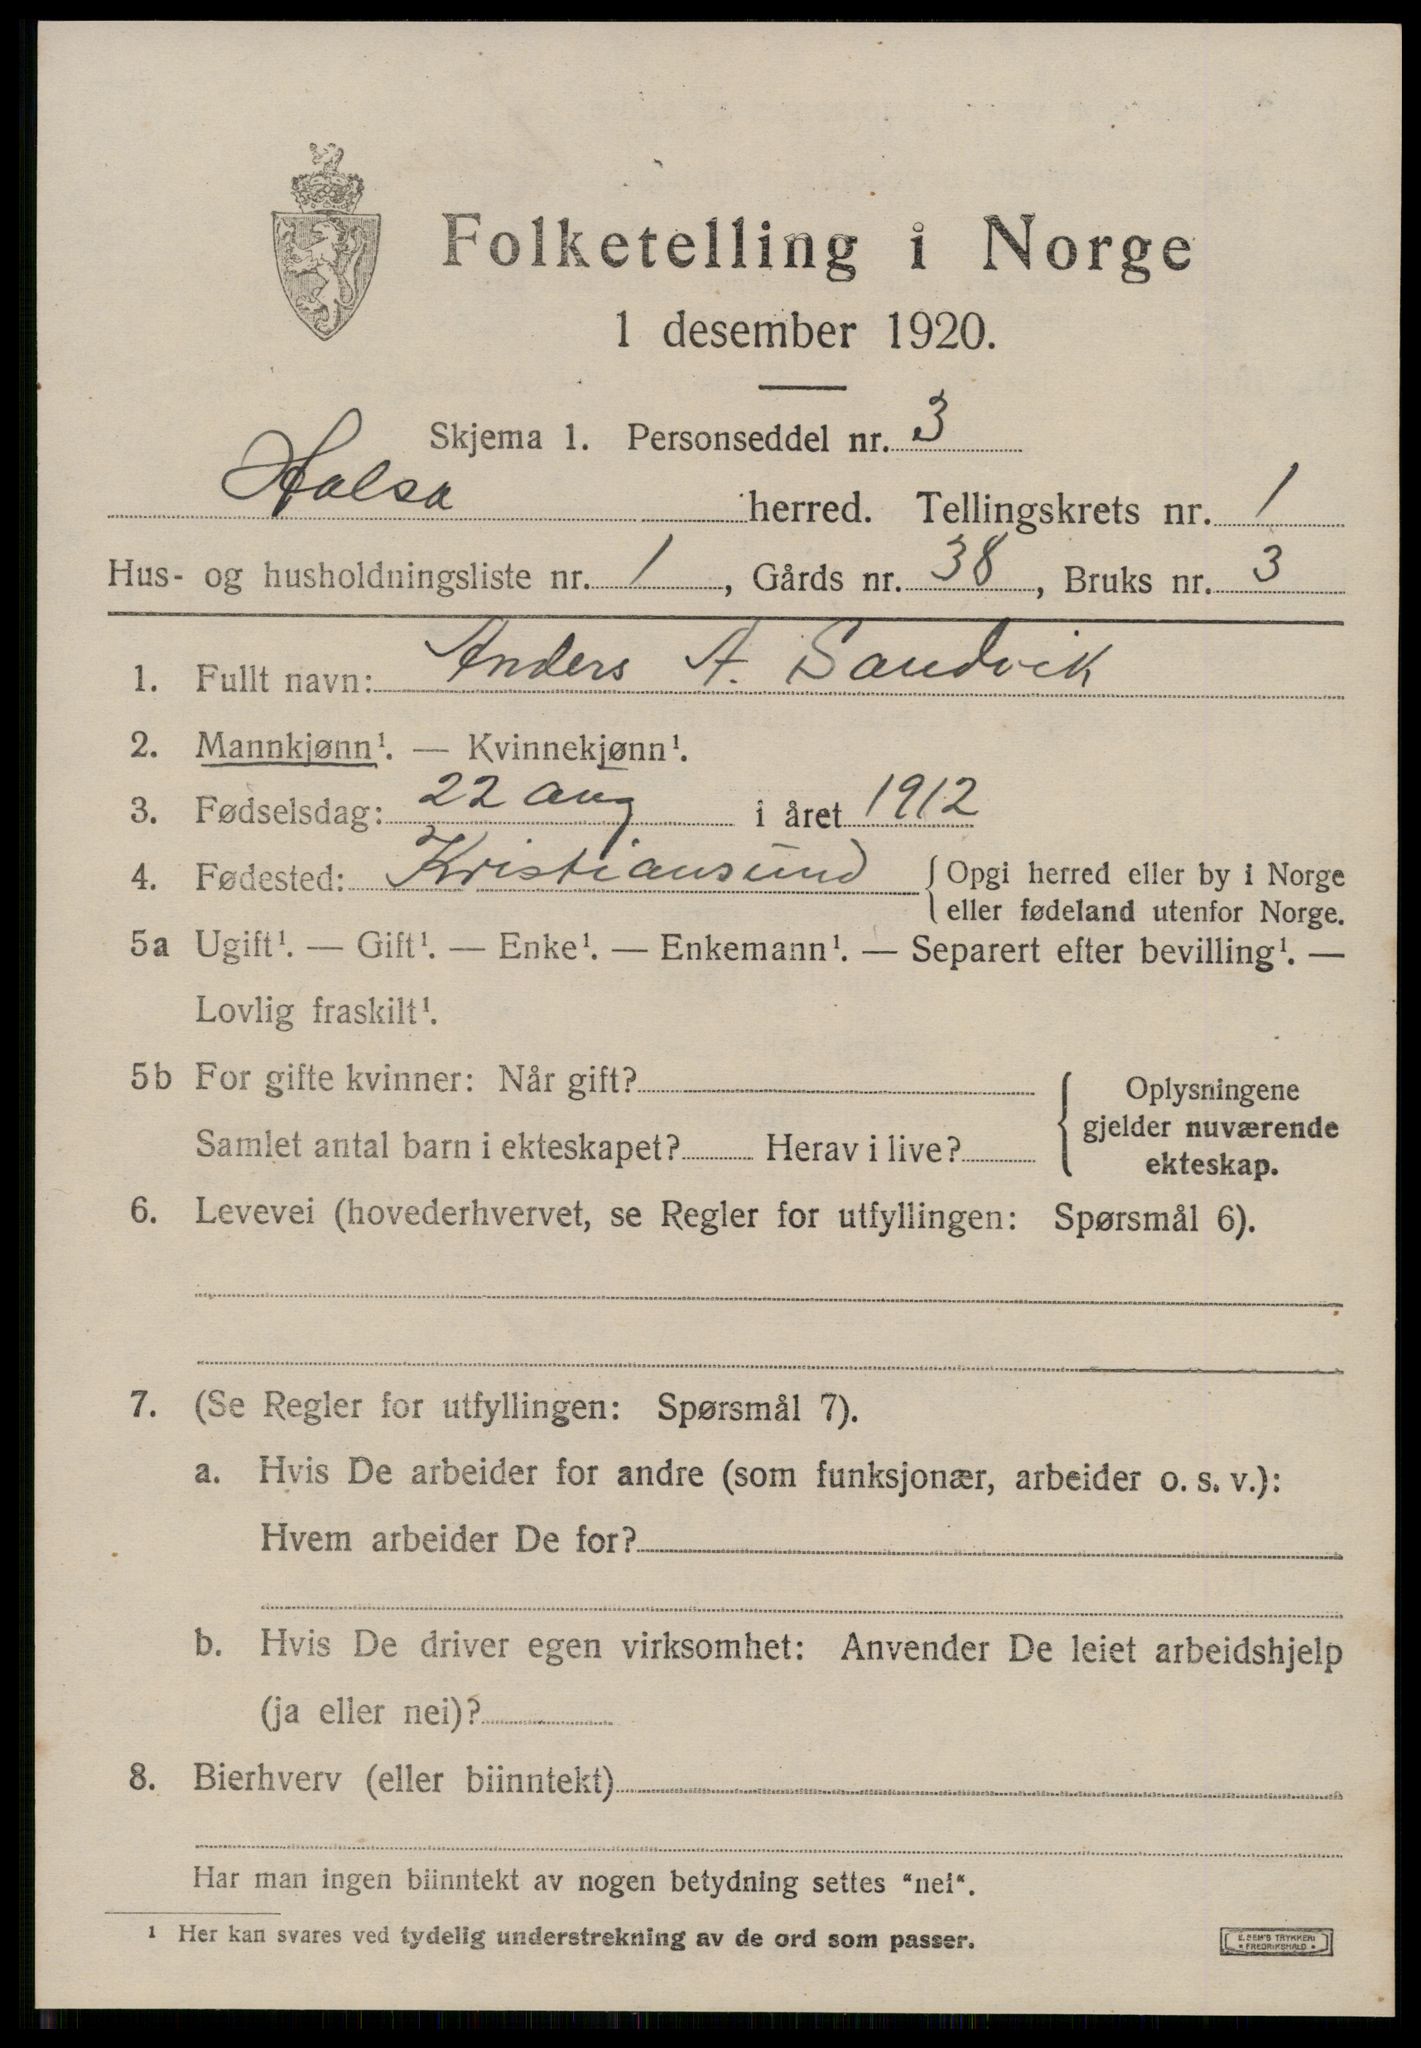 Folketelling i Norge
1 desember 1920.
Skjema 1. Personseddel nr. 3
Halsa herred. Tellingskrets nr. 1
Hus- og husholdningsliste nr. 1, Gårds nr. 38, Bruks nr. 3
1. Fullt navn: Anders A. Sandvik
2. Mannkjønn¹. — Kvinnekjønn¹.
3. Fødselsdag: 22 aug i året 1912
4. Fødested: Kristiansund { Opgi herred eller by i Norge
eller fødeland utenfor Norge.
5a Ugift¹. — Gift¹. — Enke¹. — Enkemann¹. — Separert efter bevilling¹. —
Lovlig fraskilt¹.
5b For gifte kvinner: Når gift?
Samlet antal barn i ekteskapet? Herav i live?
Oplysningene
gjelder nuværende
ekteskap.
6. Levevei (hovederhvervet, se Regler for utfyllingen: Spørsmål 6).
7. (Se Regler for utfyllingen: Spørsmål 7).
a. Hvis De arbeider for andre (som funksjonær, arbeider o. s. v.):
Hvem arbeider De for?
b. Hvis De driver egen virksomhet: Anvender De leiet arbeidshjelp
(ja eller nei)?
8. Bierhverv (eller biinntekt)
Har man ingen biinntekt av nogen betydning settes "nei".
¹ Her kan svares ved tydelig understrekning av de ord som passer.
E. SEM'S TRYKKERI
• FREDRIKSHALD •